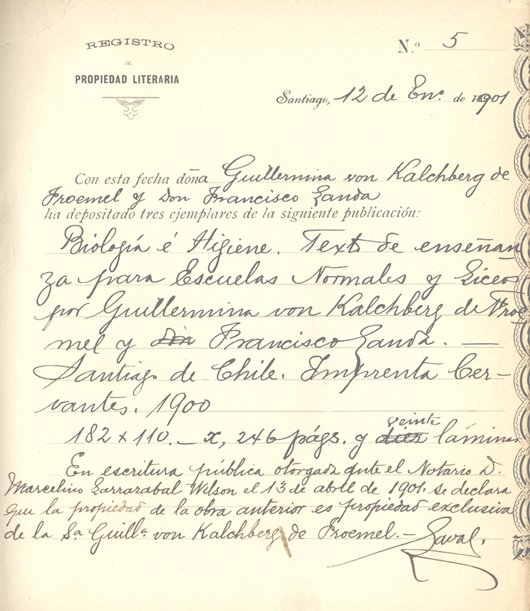 REGISTRO
DE
PROPIEDAD LITERARIA
N.º 5
Santiago, 12 de En.º de 1901
Con esta fecha doña Guillermina von Kalchberg de
Froemel y Don Francisco Zanda
ha depositado tres ejemplares de la siguiente publicación:
Biología é Higiene. Texto de enseñan
za para Escuelas Normales y Liceos
por Guillermina von Kalchberg de Froe
mel y don Francisco Landa. —
Santiago de Chile. Imprenta Cer-
vantes. 1900
182 x 110. — x, 246 págs. y diez veinte láminas
En escritura pública otorgada ante el Notario D.
Marcelino Larrazabal Wilson el 13 de abril de 1901. se declara
que la propiedad de la obra anterior es propiedad exclusiva
de la Sª Guillª von Kalchberg de Froemel. — Laval.